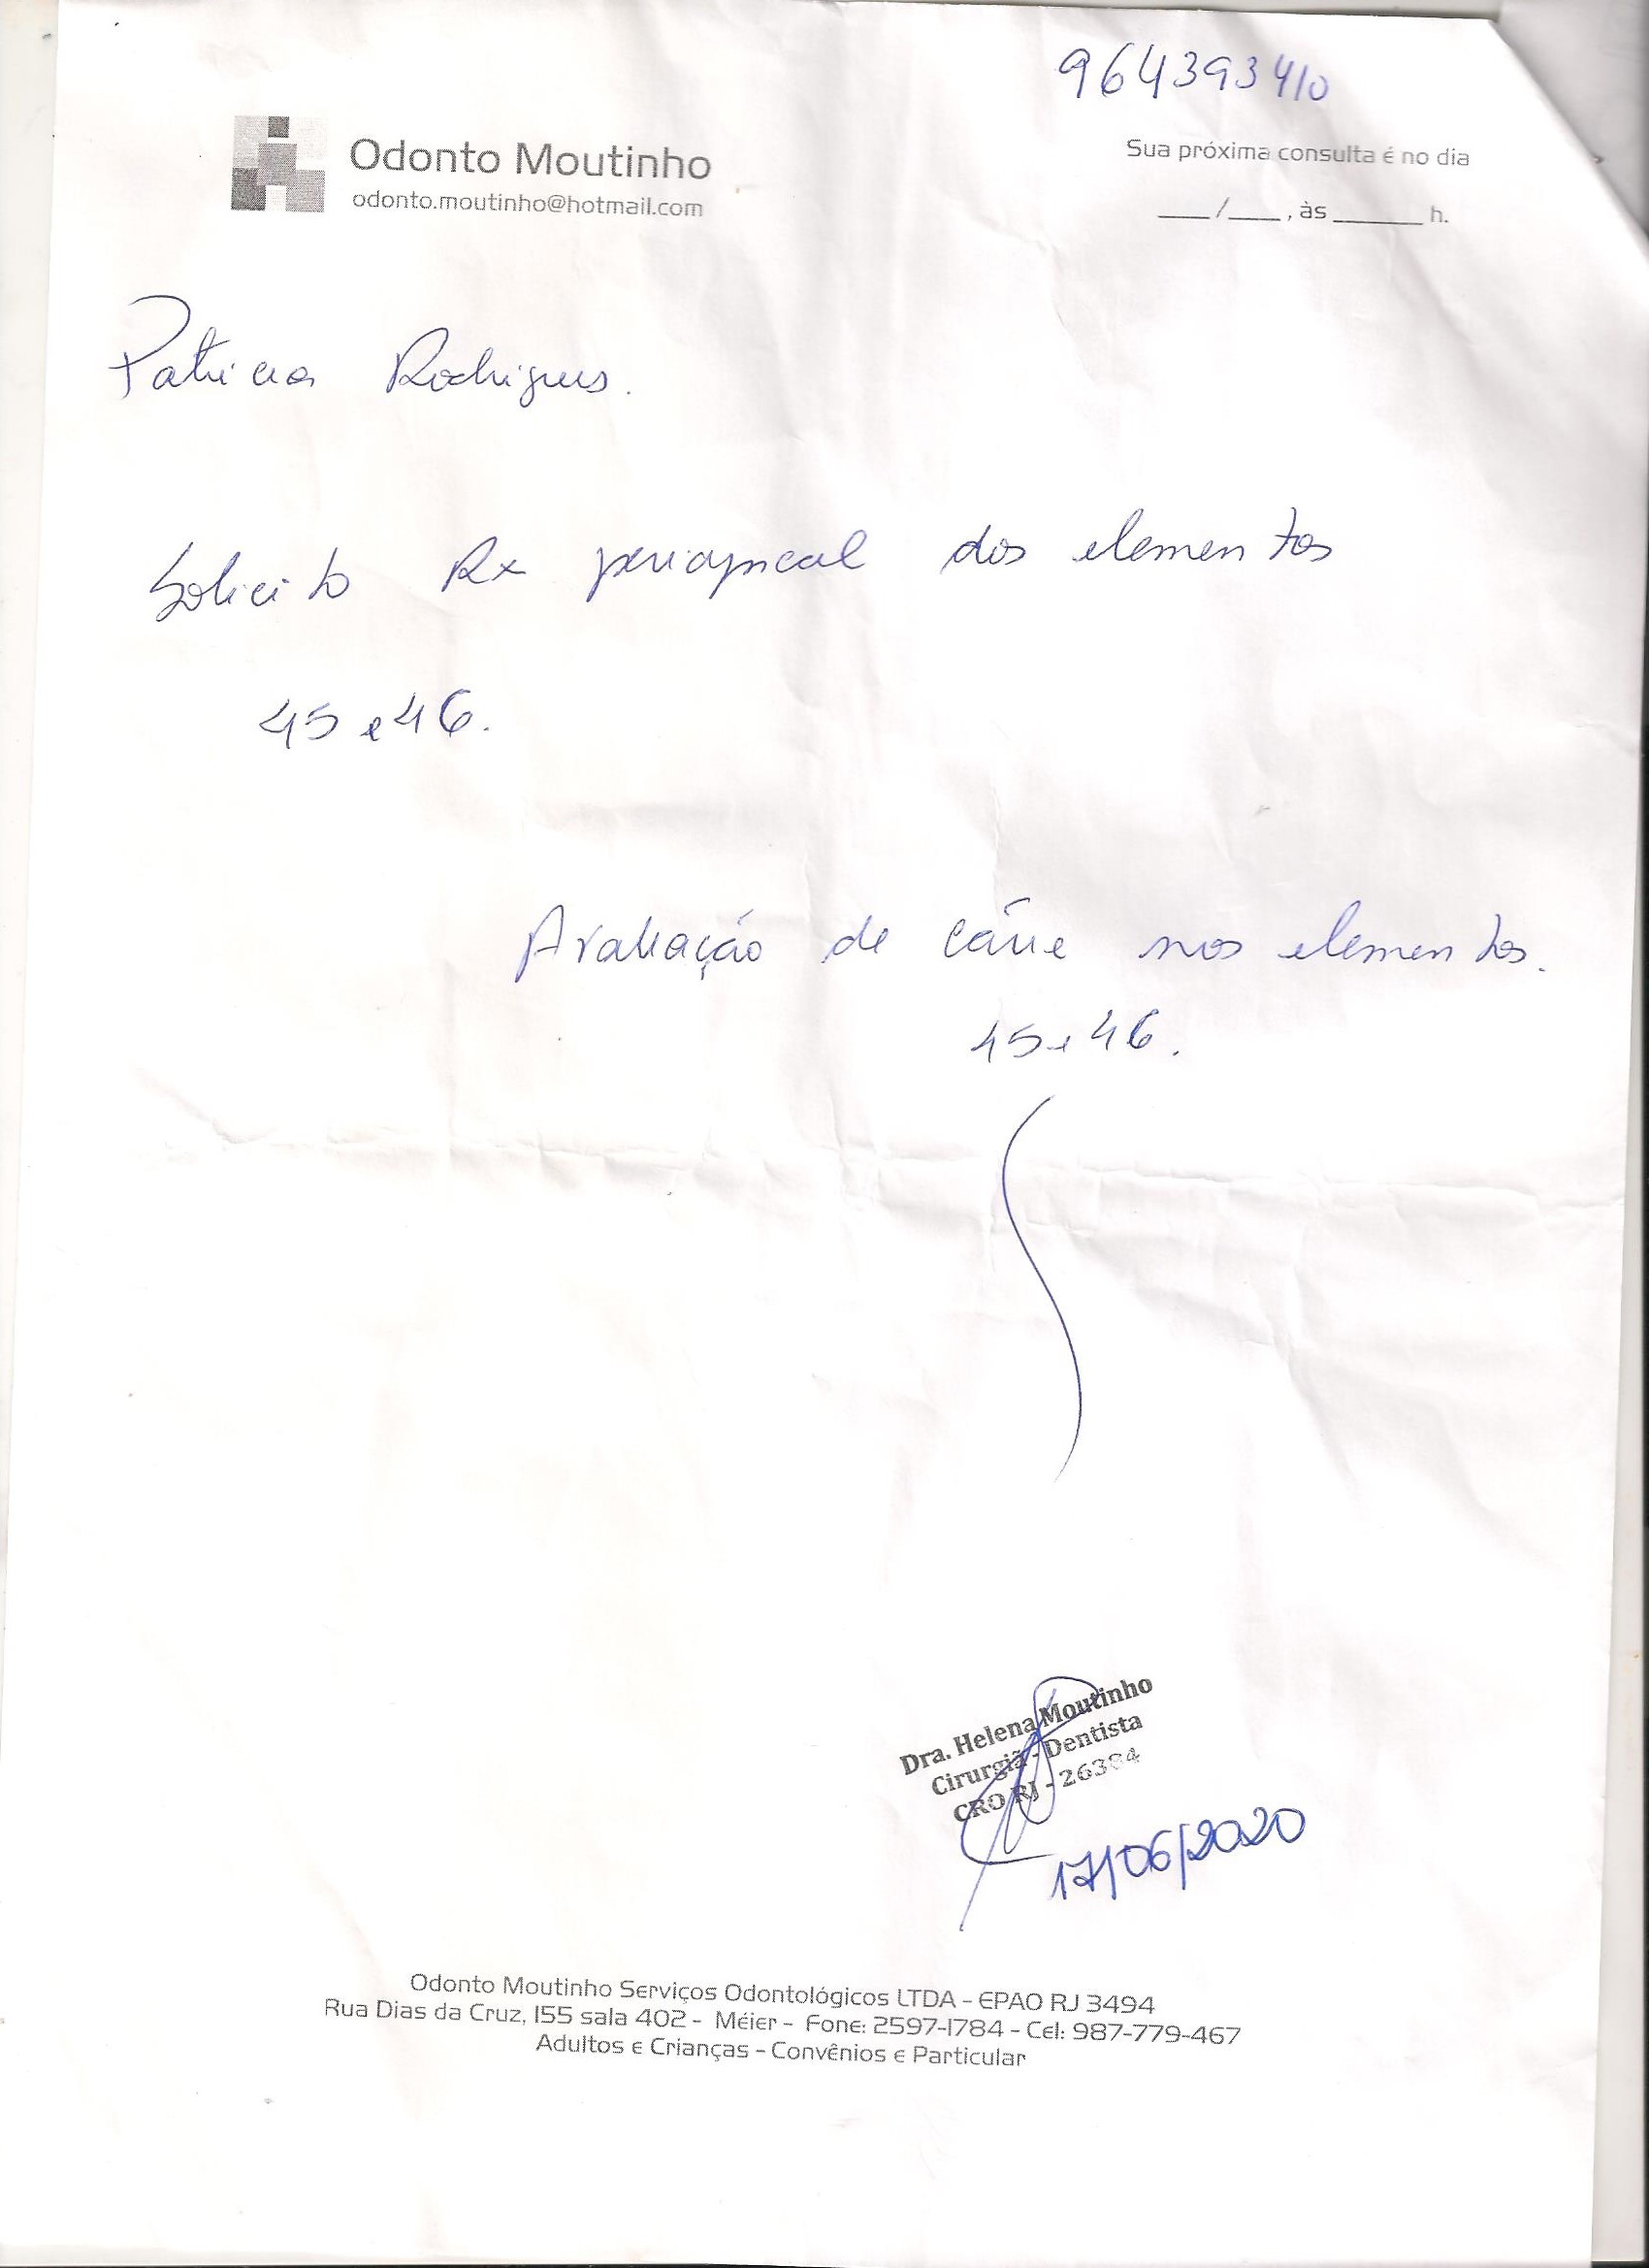 964393410
Odonto Moutinho
odonto.moutinho@hotmail.com
Sua próxima consulta é no dia
___/___, às ______ h.
Patricia Rodrigues.
Solicito Rx periapical dos elementos
45 e 46.
Avaliação de cárie nos elementos.
45 e 46.
Dra. Helena Moutinho
Cirurgiã - Dentista
CRO RJ - 26384
17/06/2020
Odonto Moutinho Serviços Odontológicos LTDA - EPAO RJ 3494
Rua Dias da Cruz, 155 sala 402 - Méier - Fone: 2597-1784 - Cel: 987-779-467
Adultos e Crianças - Convênios e Particular